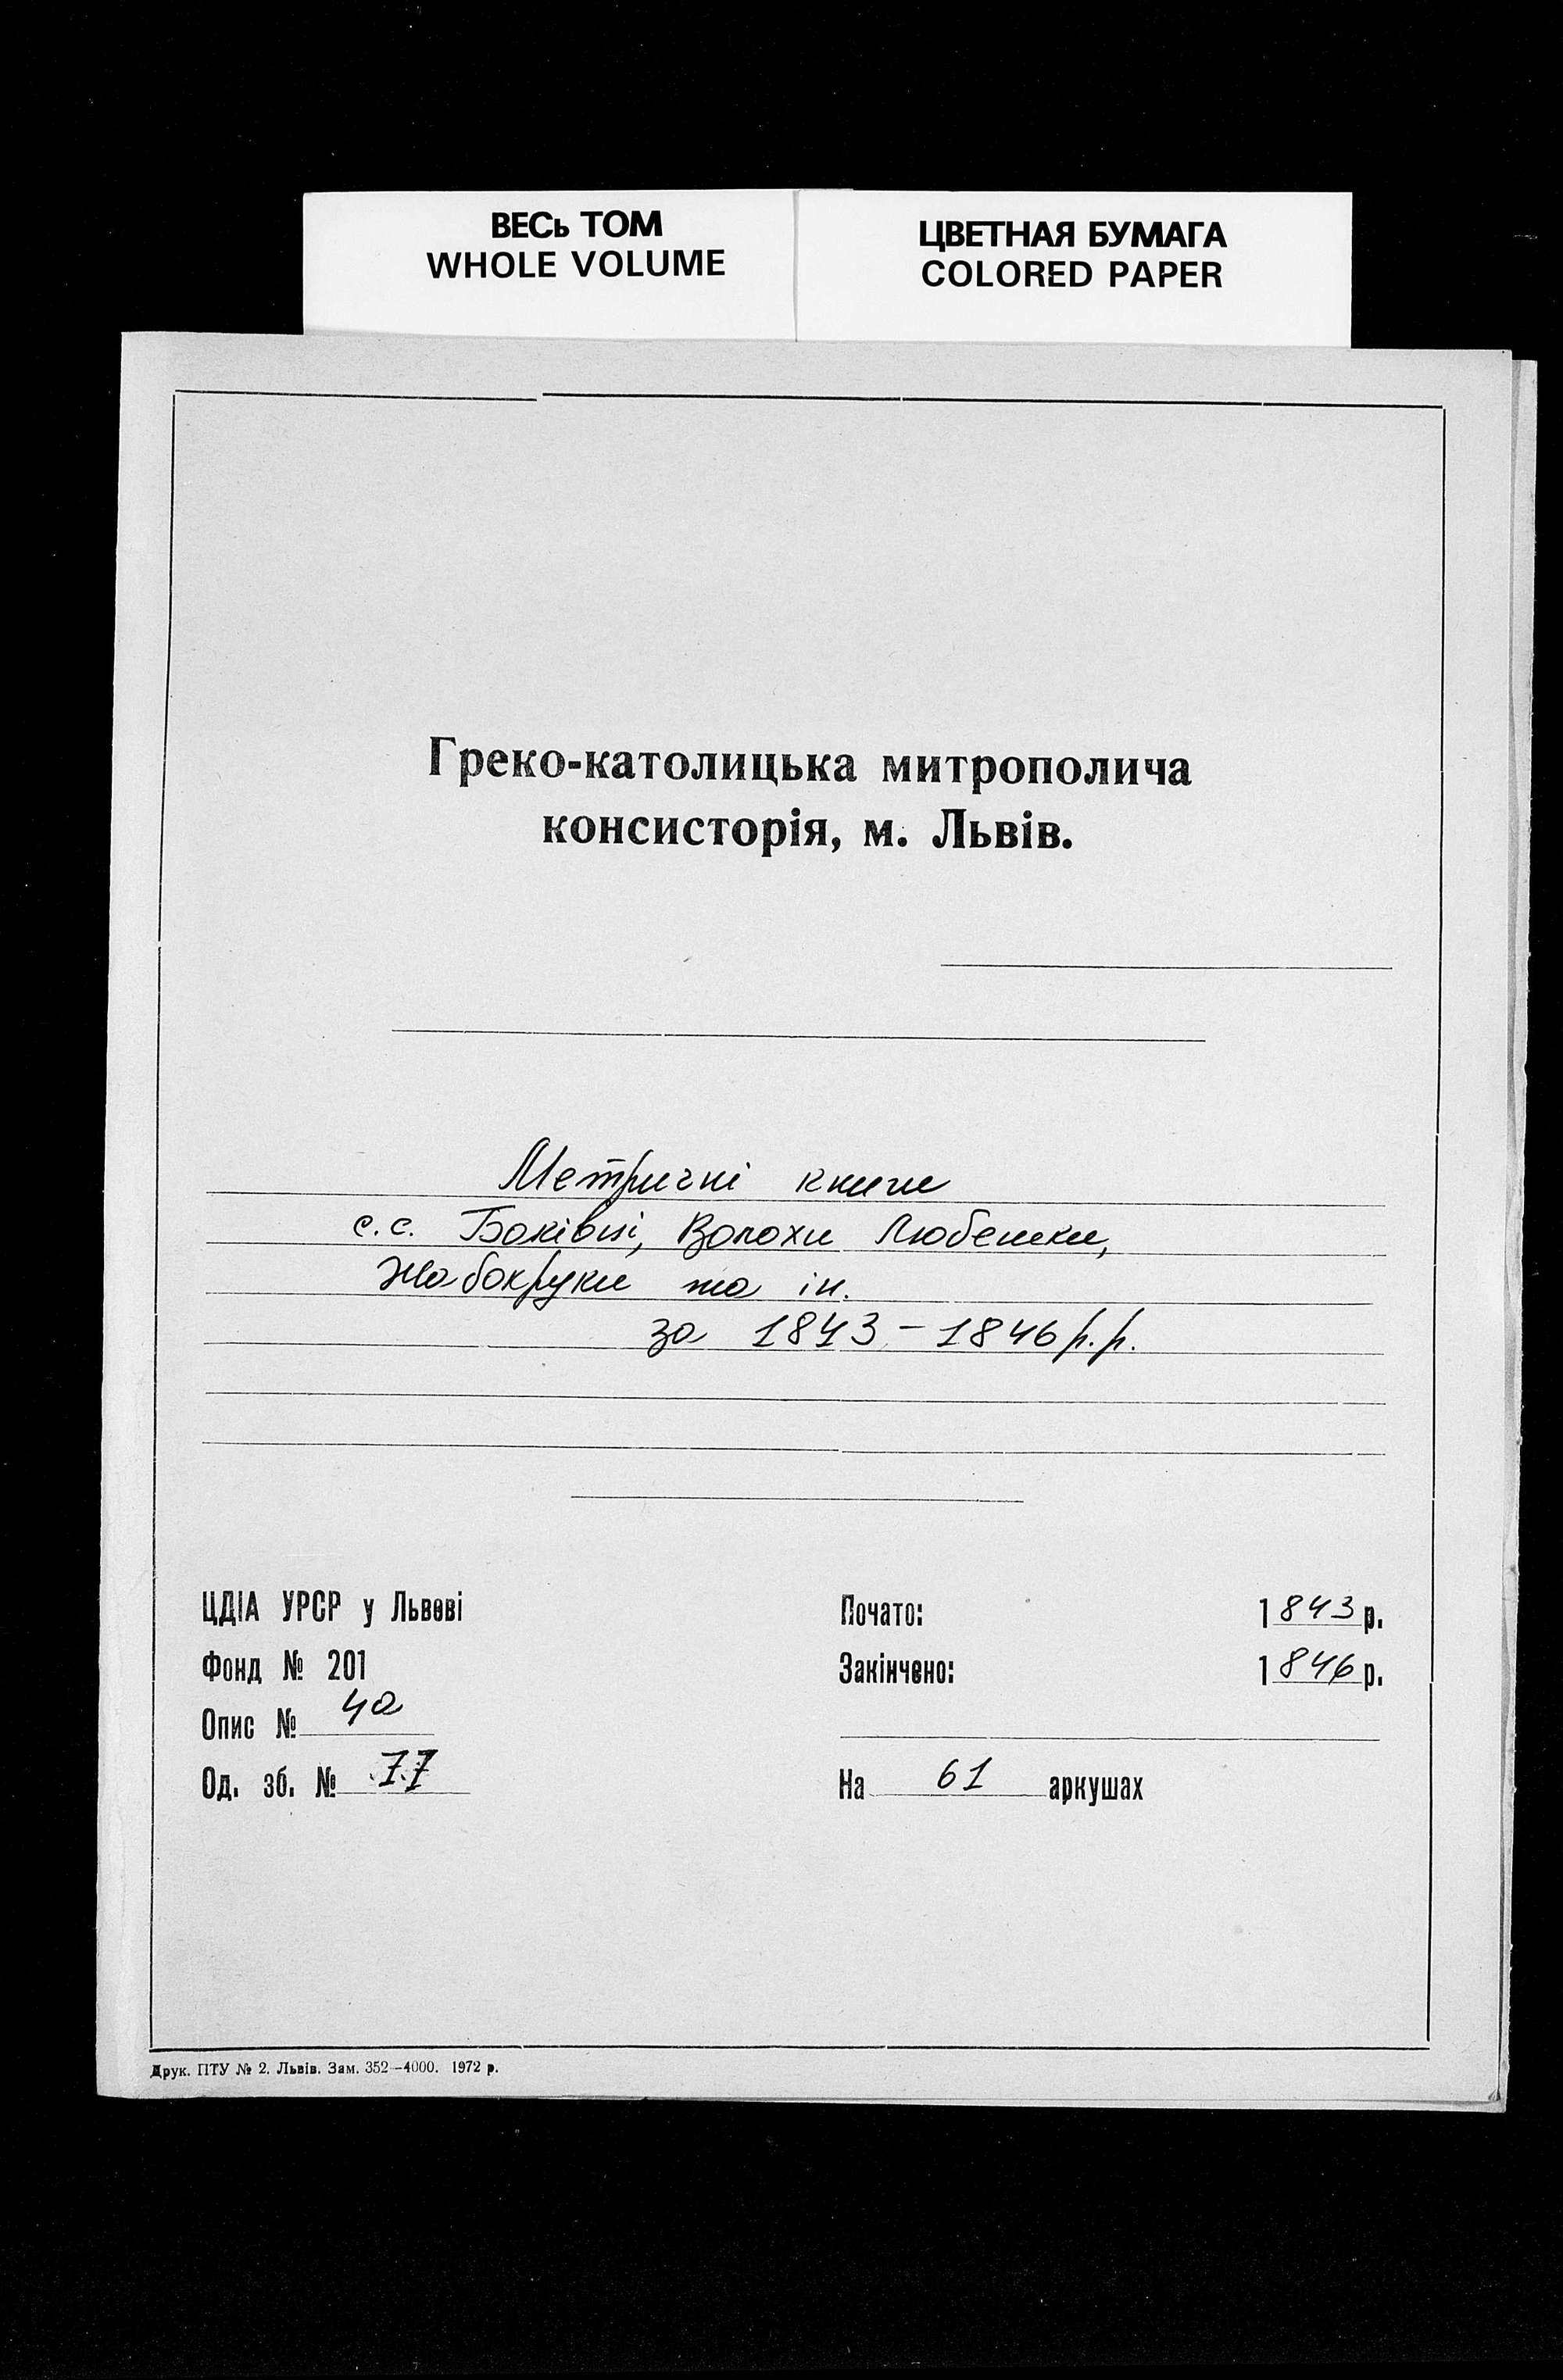 ВЕСЬ ТОМ
WHOLE VOLUME
ЦВЕТНАЯ БУМАГА
COLORED PAPER
Греко-католицька митрополича
консисторія, м. Львів.
Метричні книги
с.с. Боківці, Волохи Любешки,
Жабокруки та ін.
за 1843-1846 р.р.
ЦДІА УРСР у Львові
Фонд № 201
Опис № 4а
Од. зб. № 77
Почато: 1843 р.
Закінчено: 1846 р.
На 61 аркушах
Друк. ПТУ № 2. Львів. Зам. 352—4000. 1972 р.